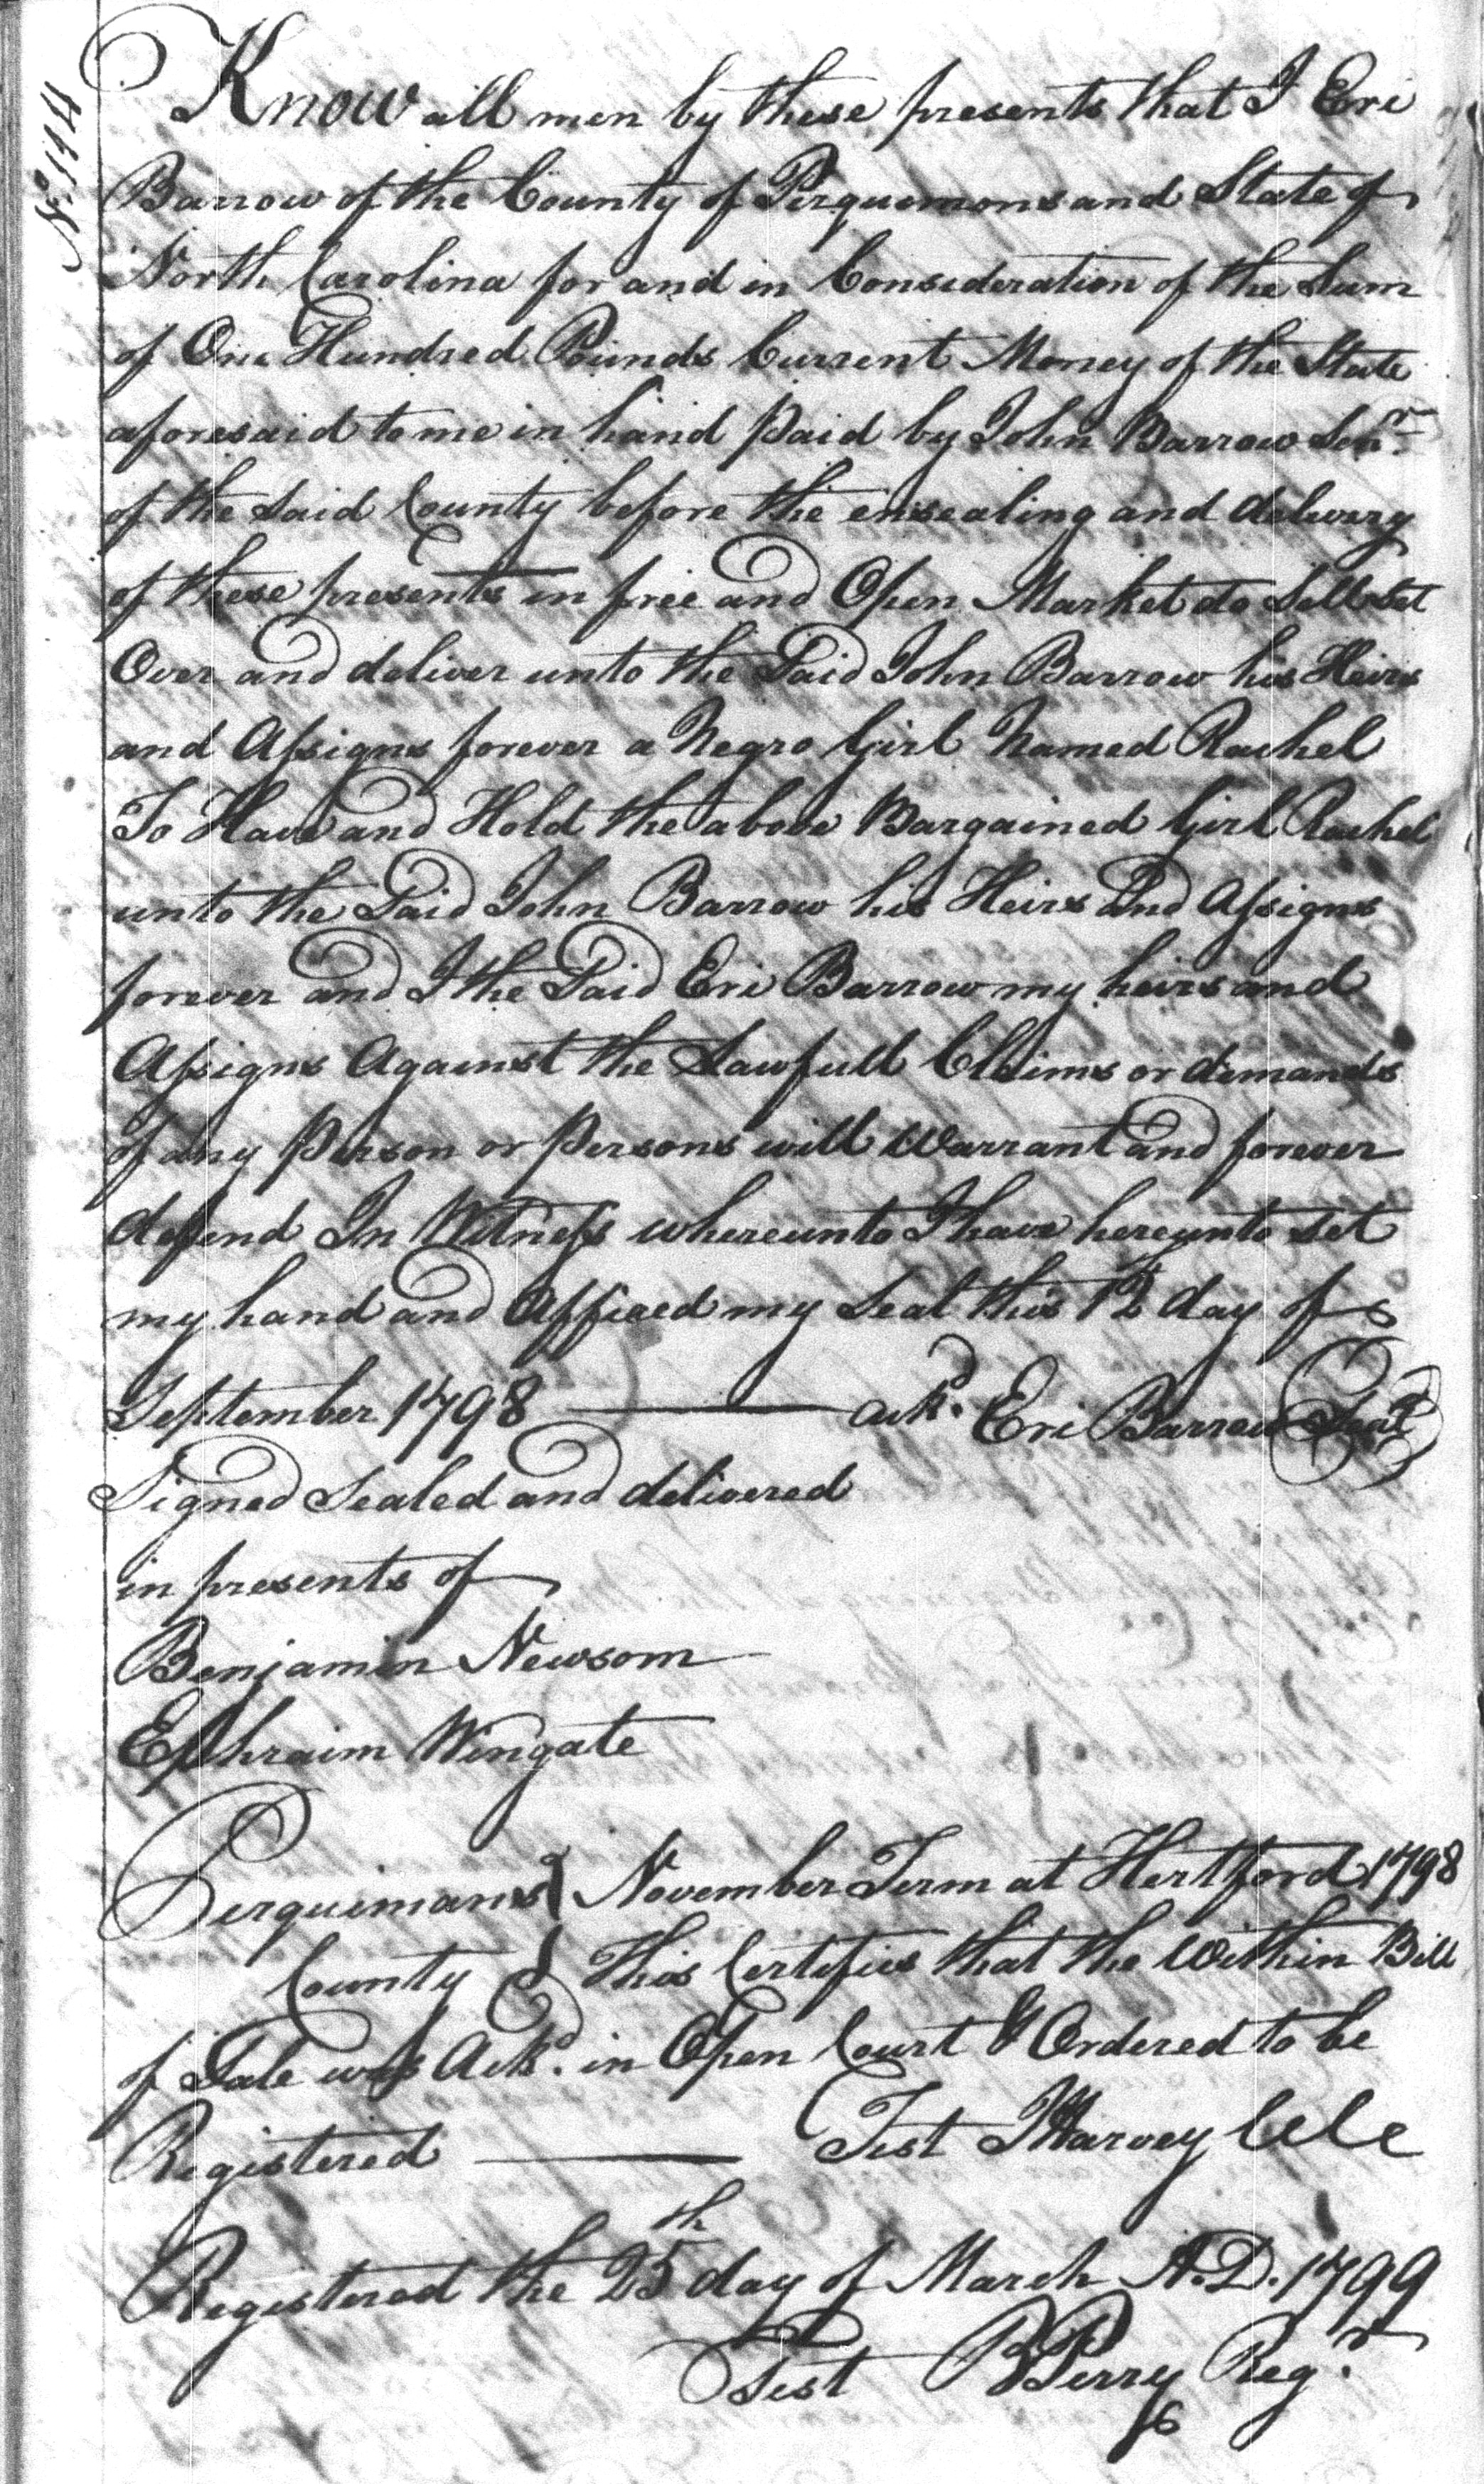 No. 114
Know all men by these presents that I Eri
Barrow of the County of Perquemons and State of
North Carolina for and in Consideration of the Sum
of One Hundred Pounds Current Money of the State
aforesaid to me in hand paid by John Barrow Senr.
of the Said County before the ensealing and delivery
of these presents in free and Open Market do Sell Set
Over and deliver unto the Said John Barrow his Heirs
and Assigns forever a Negro Girl Named Rachel
To Have and Hold the above Bargained Girl Rachel
unto the Said John Barrow his Heirs and Assigns
forever and I the Said Eri Barrow my heirs and
Assigns Against the Lawfull Claims or demands
of any Person or Persons will Warrant and forever
defend In Witness whereunto I have hereunto set
my hand and Affixed my Seal this 12 day of
September 1798 ackd. Eri Barrow Seal
Signed Sealed and delivered
in presents of
Benjamin Newsom
Ephraim Wingate
Perquimans November Term at Hertford 1798
County This Certifies that the Within Bill
of Sale was Ackd. in Open Court & Ordered to be
Registered Test Harvey Clc
Registered the 25th day of March A.D. 1799
Test Perry Regr.